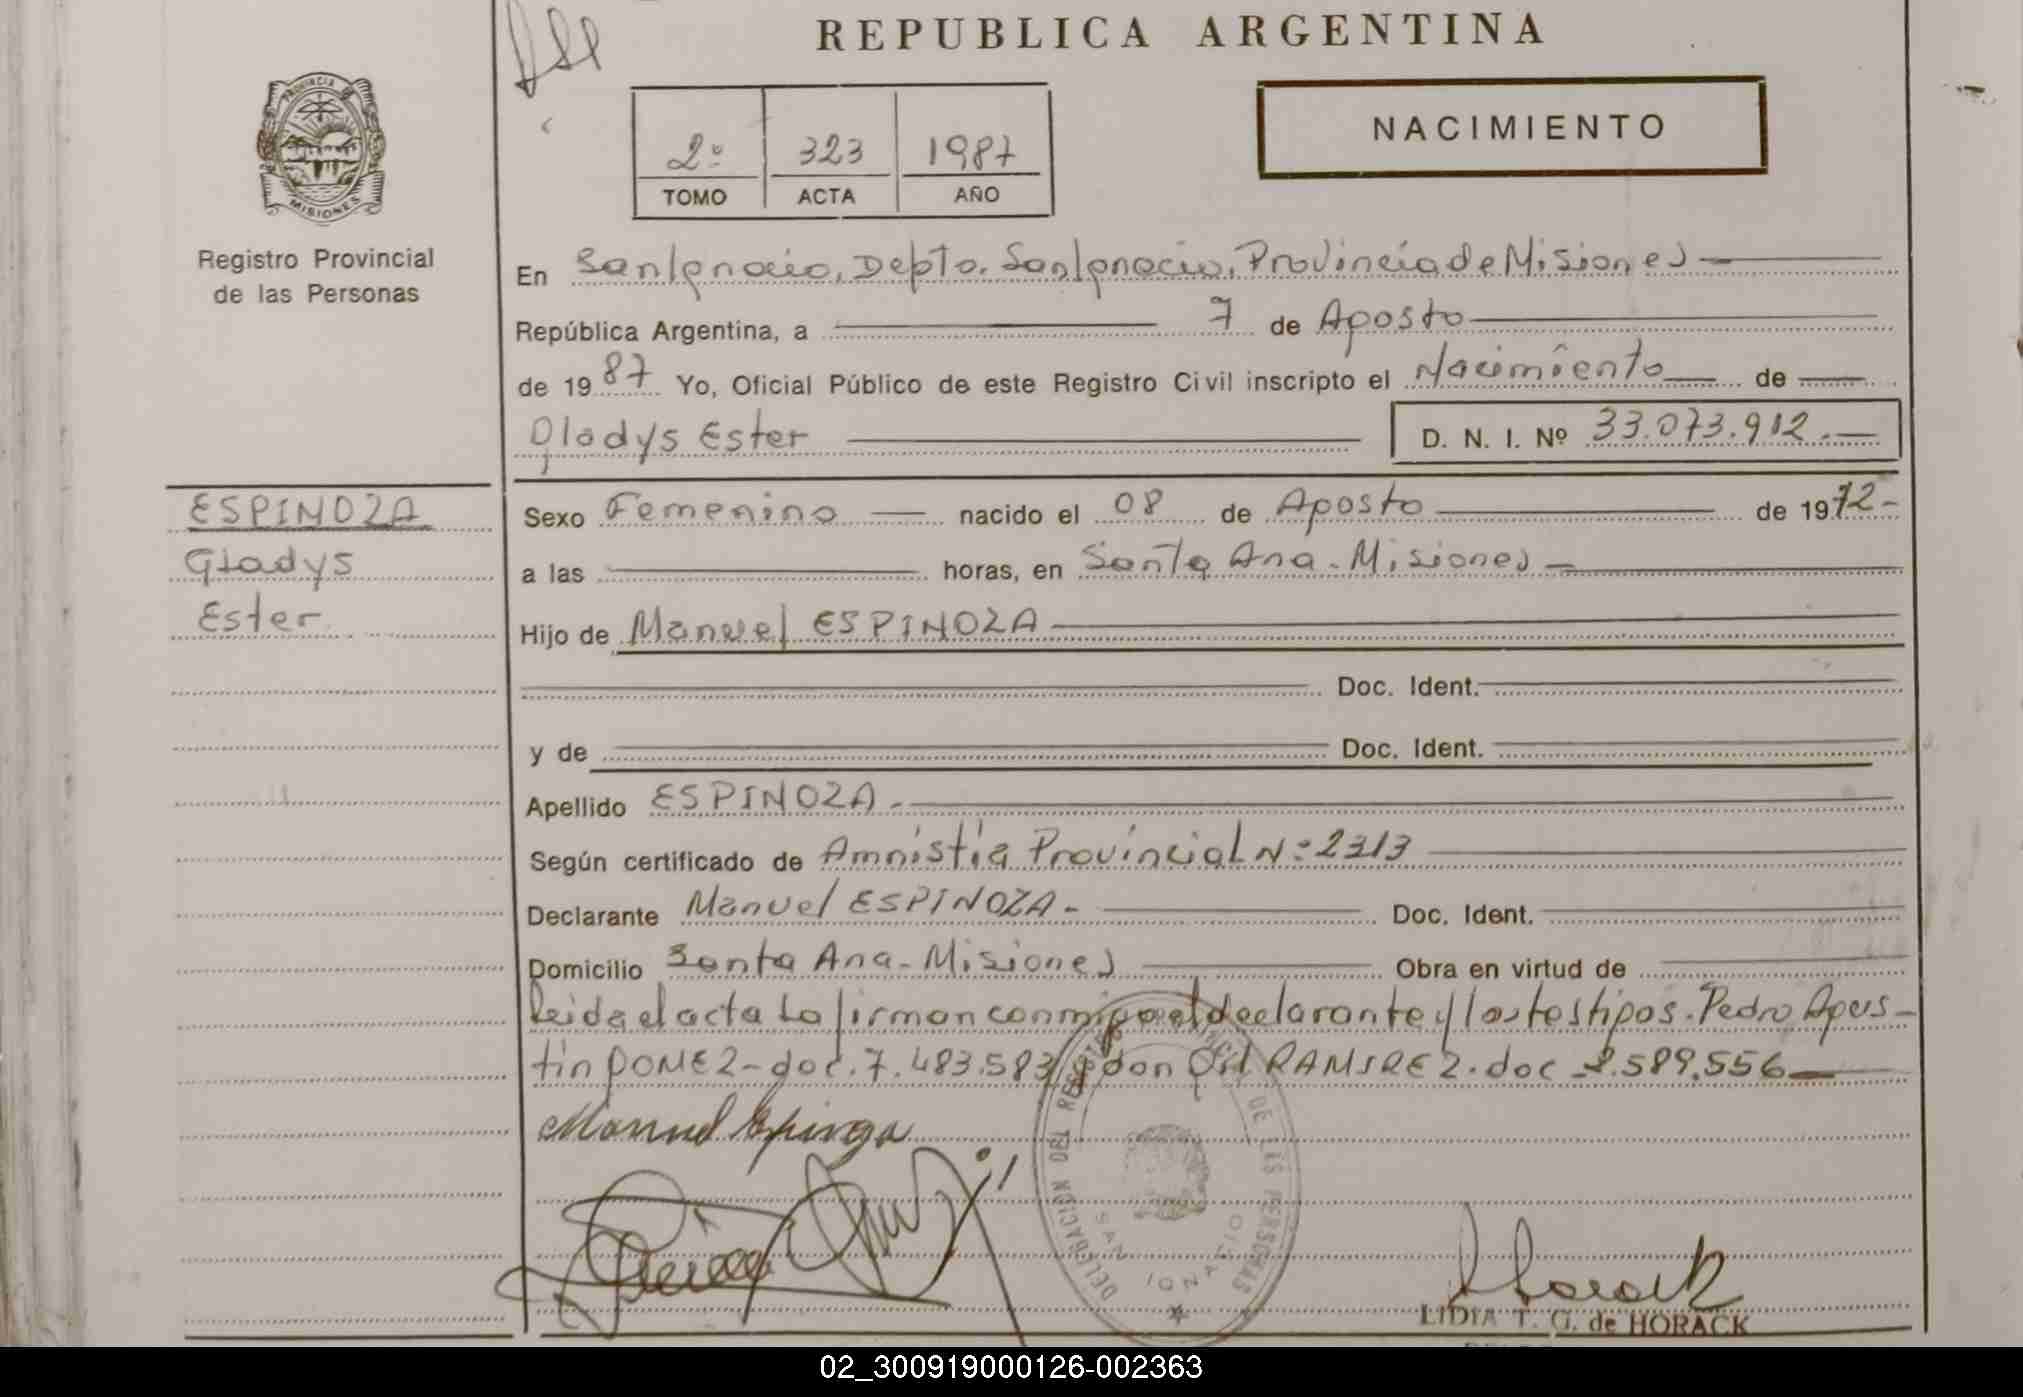 REPUBLICA ARGENTINA
PROVINCIA DE
MISIONES
Registro Provincial
de las Personas
2º 323 1987
TOMO ACTA AÑO
NACIMIENTO
En San Ignacio, Depto. San Ignacio, Provincia de Misiones
República Argentina, a 7 de Agosto
de 1987 Yo, Oficial Público de este Registro Civil inscripto el Nacimiento de
Gladys Ester D. N. I. Nº 33.073.912.-
ESPINOZA
Gladys
Ester
Sexo Femenino nacido el 08 de Agosto de 1972-
a las horas, en Santa Ana - Misiones -
Hijo de Manuel ESPINOZA
Doc. Ident.
y de Doc. Ident.
Apellido ESPINOZA.
Según certificado de Amnistia Provincial Nº 2313
Declarante Manuel ESPINOZA - Doc. Ident.
Domicilio Santa Ana - Misiones Obra en virtud de
Leida el acta La firman conmigo el declarante y los testigos. Pedro Agus-
tin GOMEZ - doc. 7.483.583 y don Gil RAMIREZ. doc 2.589.556
Manuel Espinoza
DELEGACION DEL REGISTRO PROVINCIAL DE LAS PERSONAS
SAN IGNACIO
Horack
LIDIA T. G. de HORACK
02_300919000126-002363